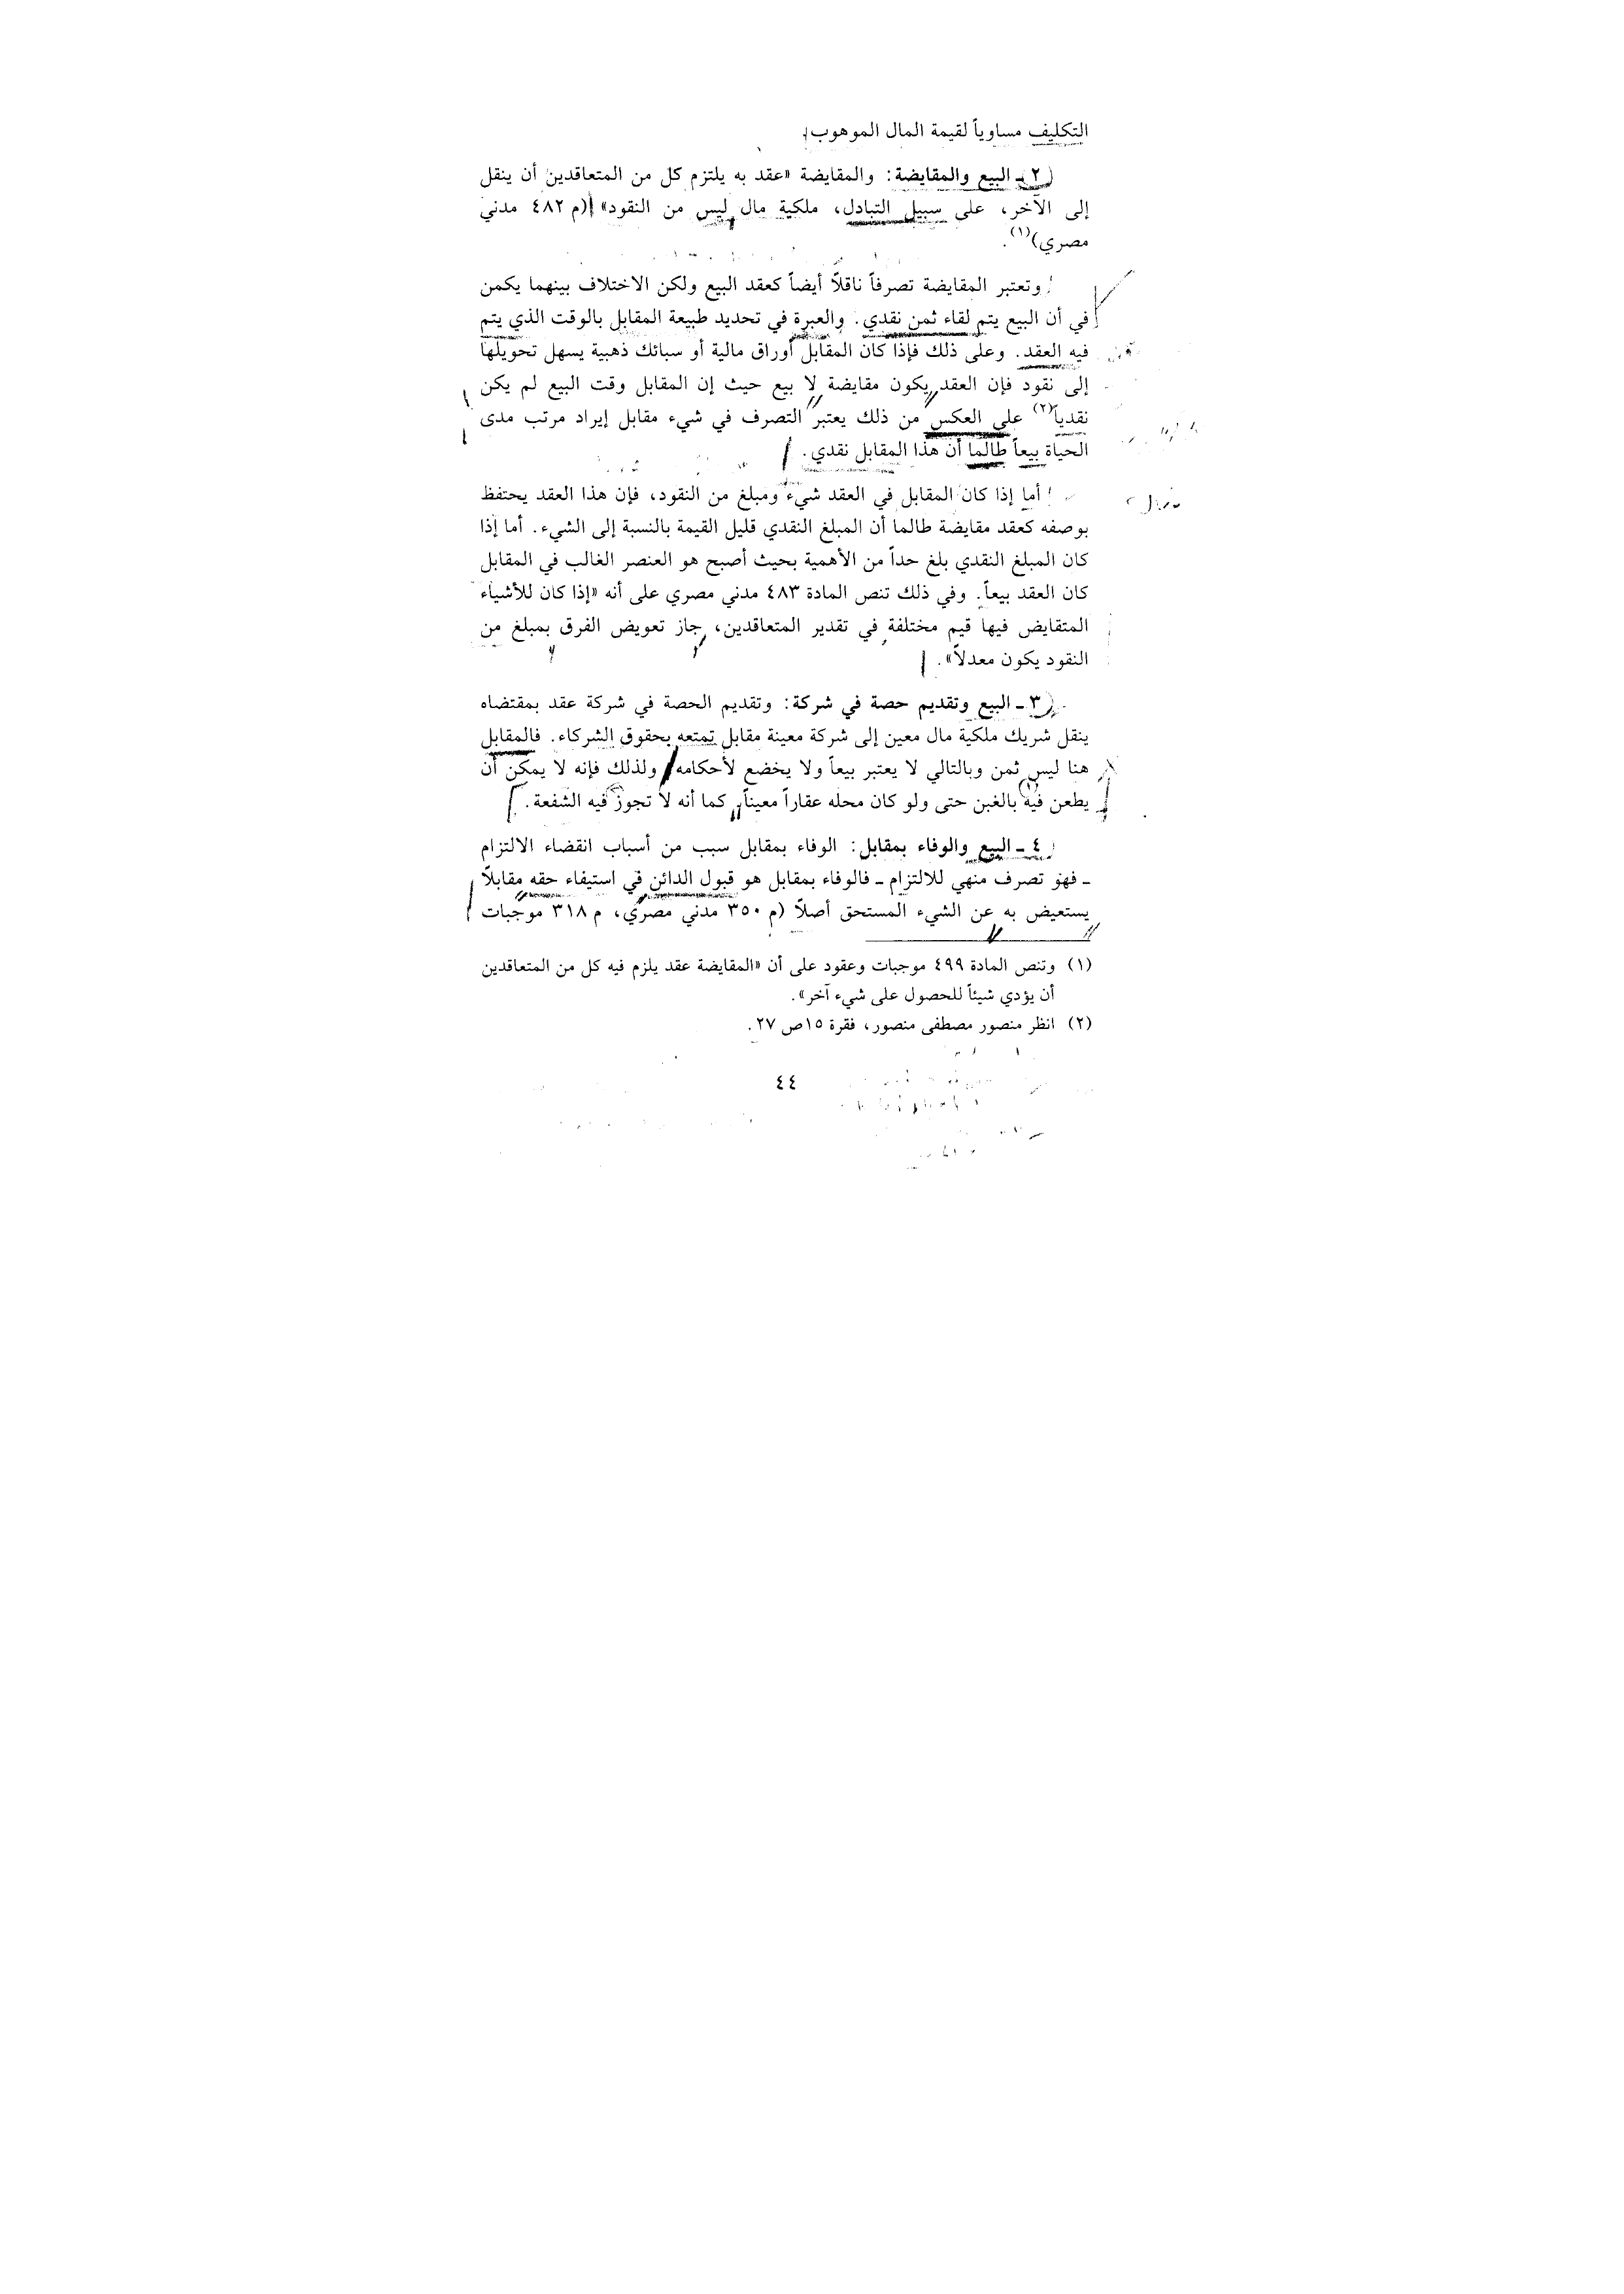 التكليف مساوياً لقيمة المال الموهوب.
٢ ـ البيع والمقايضة: والمقايضة «عقد به يلتزم كل من المتعاقدين أن ينقل
إلى الآخر، على سبيل التبادل، ملكية مال ليس من النقود» (م ٤٨٢ مدني
مصري)(١).
وتعتبر المقايضة تصرفاً ناقلاً أيضاً كعقد البيع ولكن الاختلاف بينهما يكمن
في أن البيع يتم لقاء ثمن نقدي. والعبرة في تحديد طبيعة المقابل بالوقت الذي يتم
فيه العقد. وعلى ذلك فإذا كان المقابل أوراق مالية أو سبائك ذهبية يسهل تحويلها
إلى نقود فإن العقد يكون مقايضة لا بيع حيث إن المقابل وقت البيع لم يكن
نقدياً(٢) على العكس من ذلك يعتبر التصرف في شيء مقابل إيراد مرتب مدى
الحياة بيعاً طالما أن هذا المقابل نقدي.
أما إذا كان المقابل في العقد شيء ومبلغ من النقود، فإن هذا العقد يحتفظ
بوصفه كعقد مقايضة طالما أن المبلغ النقدي قليل القيمة بالنسبة إلى الشيء. أما إذا
كان المبلغ النقدي بلغ حداً من الأهمية بحيث أصبح هو العنصر الغالب في المقابل
كان العقد بيعاً. وفي ذلك تنص المادة ٤٨٣ مدني مصري على أنه «إذا كان للأشياء
المتقايض فيها قيم مختلفة في تقدير المتعاقدين، جاز تعويض الفرق بمبلغ من
النقود يكون معدلاً».
٣ ـ البيع وتقديم حصة في شركة: وتقديم الحصة في شركة عقد بمقتضاه
ينقل شريك ملكية مال معين إلى شركة معينة مقابل تمتعه بحقوق الشركاء. فالمقابل
هنا ليس ثمن وبالتالي لا يعتبر بيعاً ولا يخضع لأحكامه ولذلك فإنه لا يمكن أن
يطعن فيه بالغبن حتى ولو كان محله عقاراً معيناً، كما أنه لا تجوز فيه الشفعة.
٤ ـ البيع والوفاء بمقابل: الوفاء بمقابل سبب من أسباب انقضاء الالتزام
ـ فهو تصرف منهي للالتزام ـ فالوفاء بمقابل هو قبول الدائن في استيفاء حقه مقابلاً
يستعيض به عن الشيء المستحق أصلاً (م ٣٥٠ مدني مصري، م ٣١٨ موجبات
(١) وتنص المادة ٤٩٩ موجبات وعقود على أن «المقايضة عقد يلزم فيه كل من المتعاقدين
أن يؤدي شيئاً للحصول على شيء آخر».
(٢) انظر منصور مصطفى منصور، فقرة ١٥ص ٢٧.
٤٤